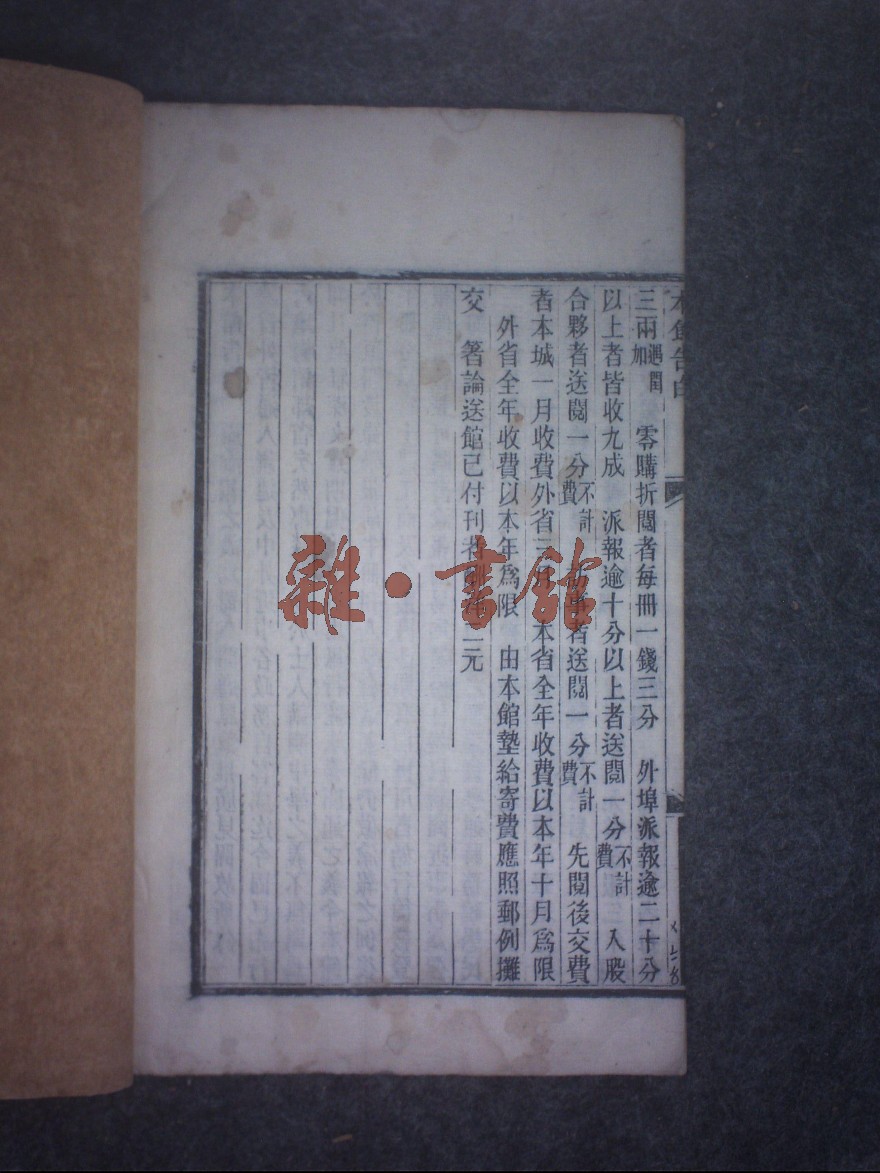 本館告白
三兩遇閏加 零購折閱者每冊一錢三分 外埠派報逾二十分
以上者皆收九成 派報逾十分以上者送閱一分不計費 入股
合夥者送閱一分不計費 訪事者送閱一分不計費 先閱後交費
者本城一月收費外省三月 本省全年收費以本年十月爲限
外省全年收費以本年爲限 由本館墊給寄費應照郵例攤
交 著論送館已付刊者 二元
雜·書館